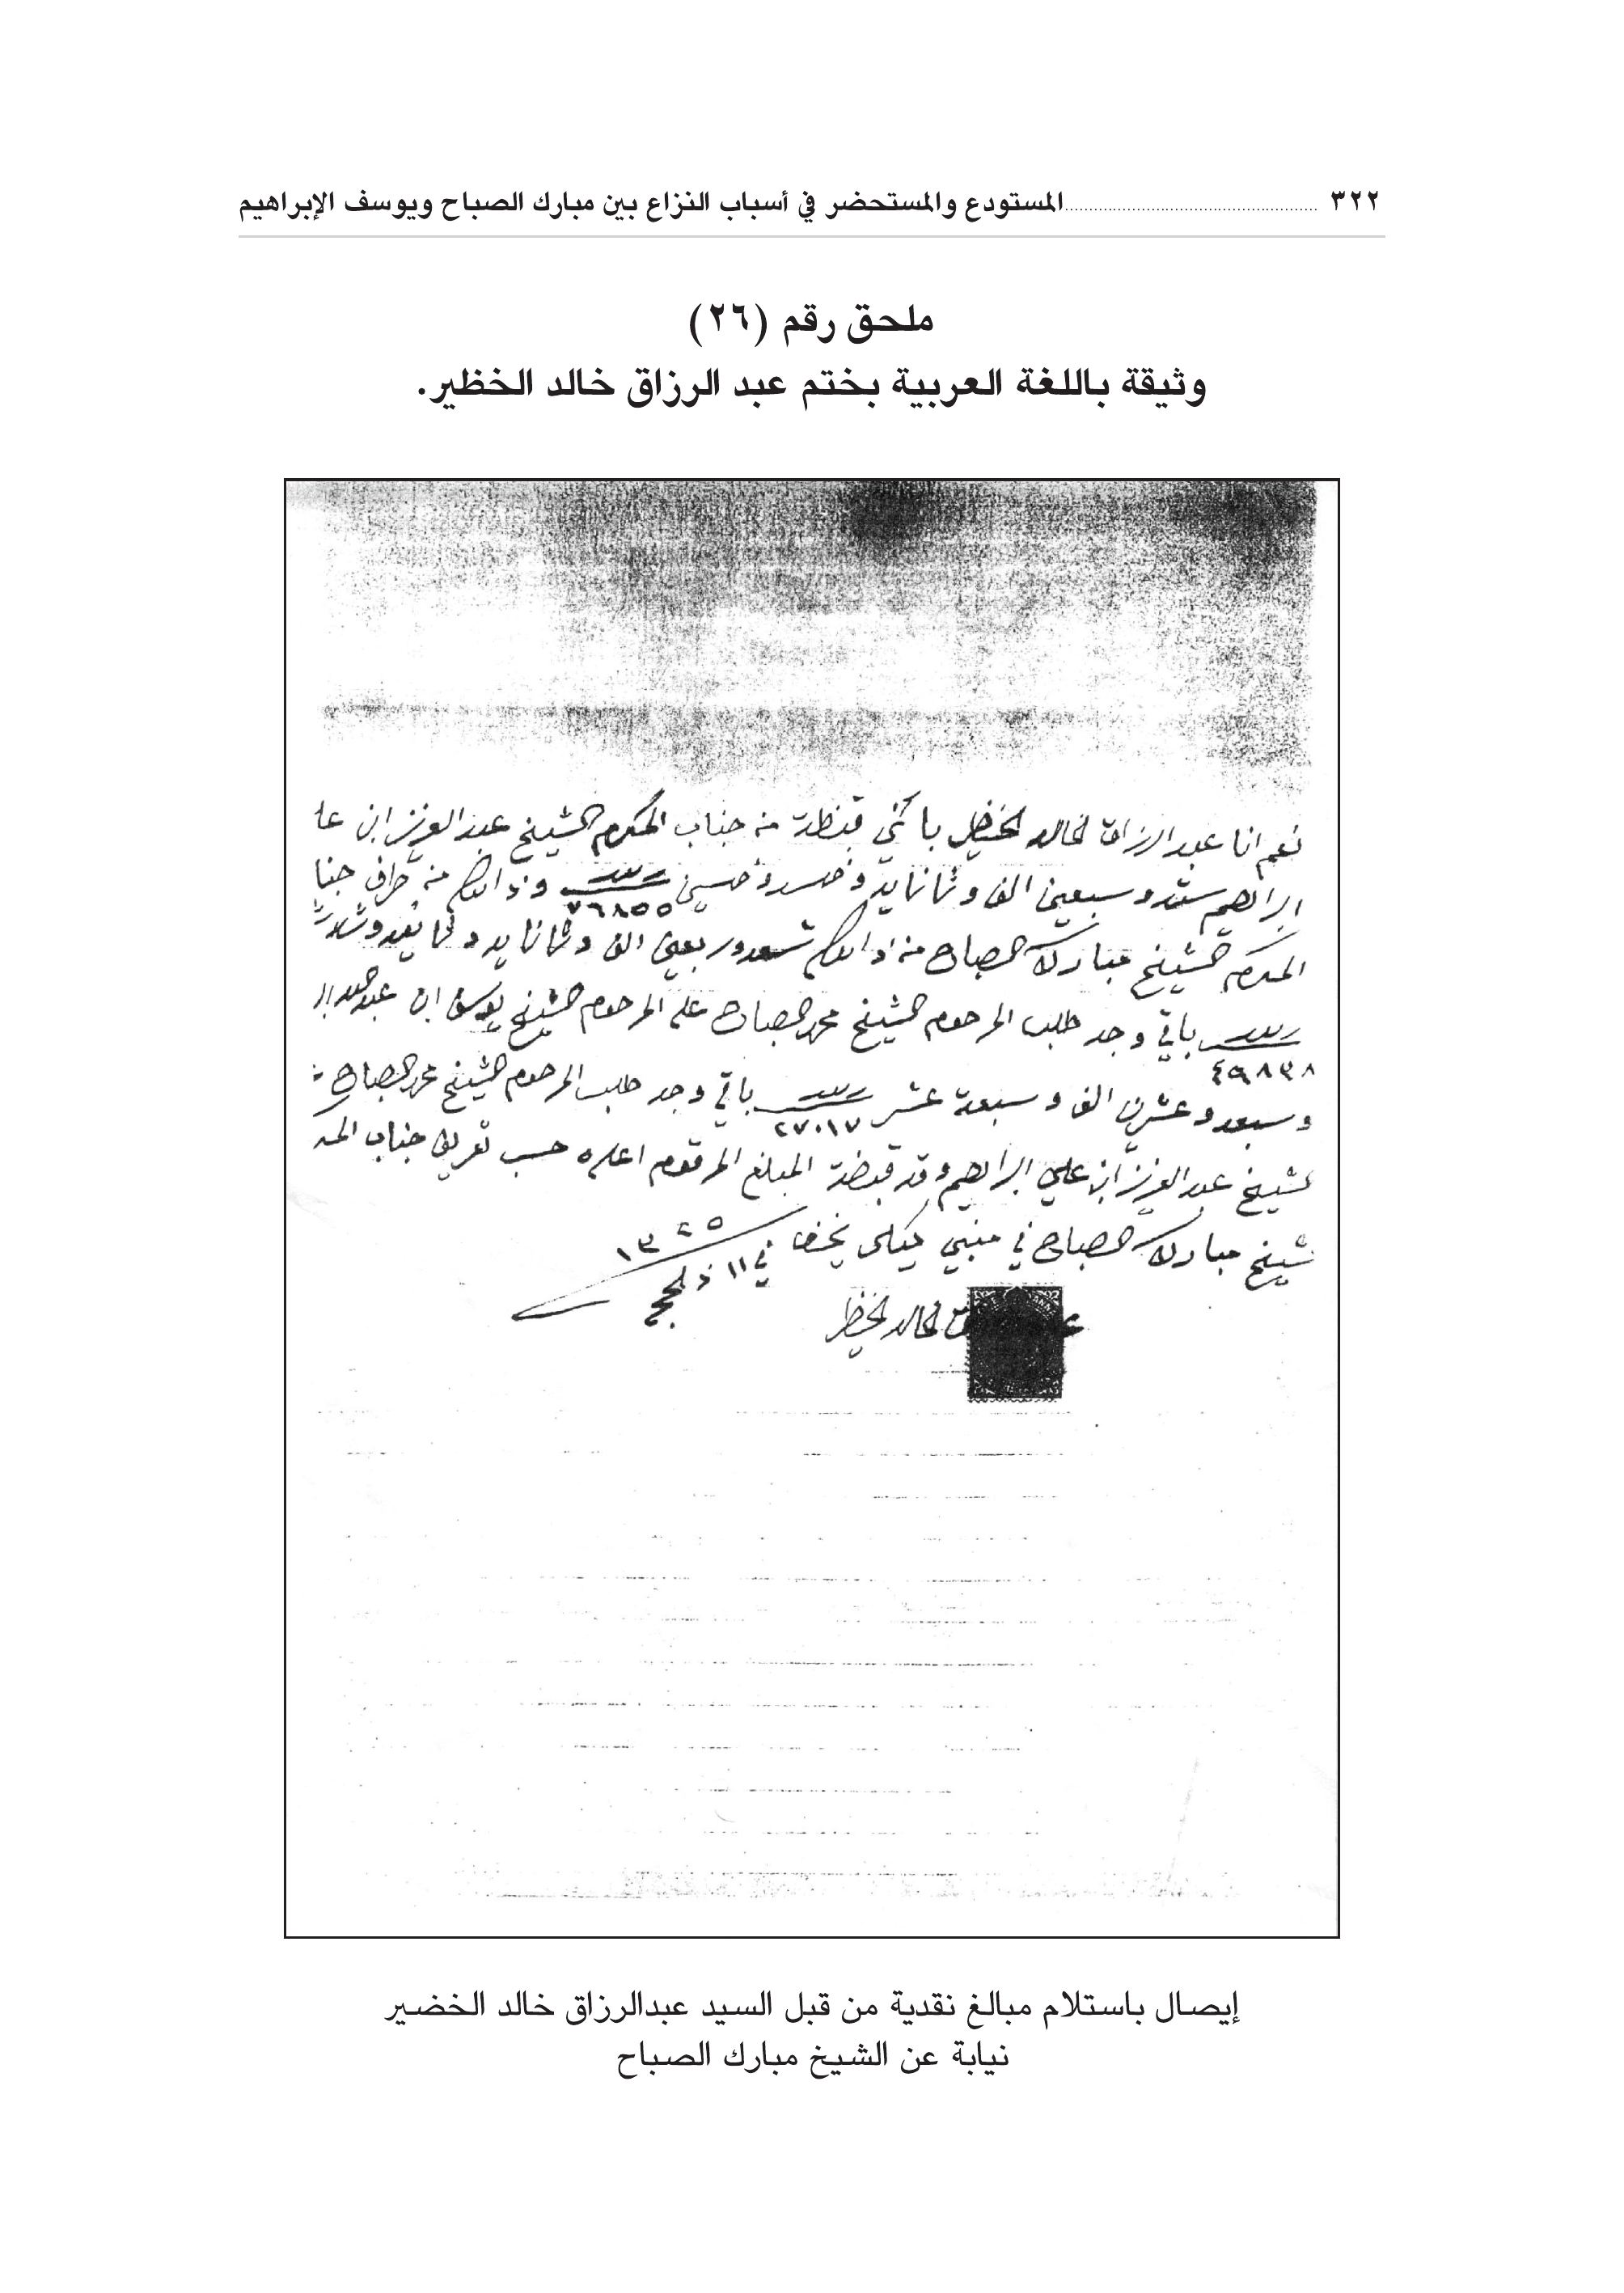 ٣٢٢ ........ المستودع والمستحضر في أسباب النزاع بين مبارك الصباح ويوسف الإبراهيم
ملحق رقم (٢٦)
وثيقة باللغة العربية بختم عبد الرزاق خالد الخظير.
نعم انا عبد الرزاق خالد الخظير باني قبظة من جناب المكرم الشيخ عبد العزيز ابن عا
ابراهيم ستة وسبعين الف وثمانماية وخمسة وخمسين ٧٦٨٥٥ وذالكم من طرف جنا
المكرم الشيخ مبارك الصباح من ذالكم تسعه وربعين الف وثمانماية وثمانيه وثلاث
٤٩٨٣٨ باقي وجد طلب المرحوم الشيخ محمد الصباح على المرحوم الشيخ يوسف ابن عبد الله
وسبعه وعشرين الف وسبعة عشر ٢٧٠١٧ باقي وجد طلب المرحوم الشيخ محمد الصباح
الشيخ عبد العزيز ابن علي ابراهيم وقد قبضة المبلغ المرقوم اعلاه حسب تعريف جناب المكـ
شيخ مبارك الصباح في منبي في ١١ ذلحج ١٣٢٥
خالد الخظير
إيصال باستلام مبالغ نقدية من قبل السيد عبدالرزاق خالد الخضير
نيابة عن الشيخ مبارك الصباح